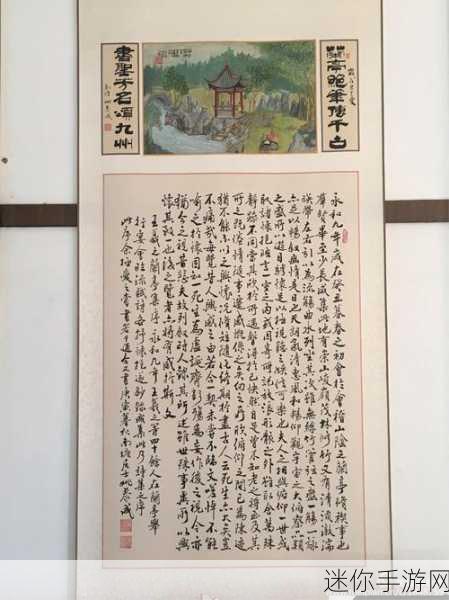 蘭亭筆傳千古
書聖名頌九州
永和九年歲在癸丑暮春之初會於會稽山陰之蘭亭脩禊事也
羣賢畢至少長咸集此地有崇山峻領茂林脩竹又有清流激湍
暎帶左右引以為流觴曲水列坐其次雖無絲竹管弦之盛一觴一詠
亦足以暢敘幽情是日也天朗氣清惠風和暢仰觀宇宙之大俯察品類
之盛所以遊目騁懷足以極視聽之娛信可樂也夫人之相與俯仰一世或
取諸懷抱悟言一室之內或因寄所託放浪形骸之外雖取舍萬殊
靜躁不同當其欣於所遇暫得於己快然自足曾不知老之將至及其
所之既倦情隨事遷感慨係之矣向之所欣俛仰之間已為陳迹
猶不能不以之興懷況脩短隨化終期於盡古人云死生亦大矣豈
不痛哉每覽昔人興感之由若合一契未嘗不臨文嗟悼不能
喻之於懷固知一死生為虛誕齊彭殤為妄作後之視今亦
猶今之視昔悲夫故列敘時人錄其所述雖世殊事異所以興
懷其致一也後之覽者亦將有感於斯文
王羲之蘭亭集序 永和九年王羲之等四十餘人在蘭亭舉
行宴會賦詩抒懷成集此乃詩集之序
此序余極愛之
迷你手游网